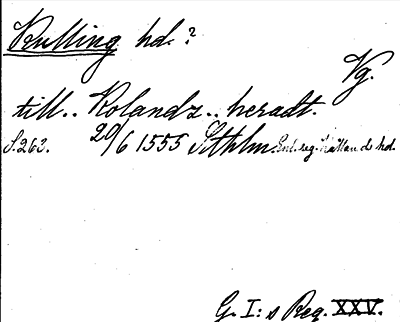 Kulling hd. ?
Vg.
till.. Kolandz.. heradt.
S. 263. 20/6 1555 Sthlm. Enl. reg. Kållands hd.
G. I:s Reg. XXV.